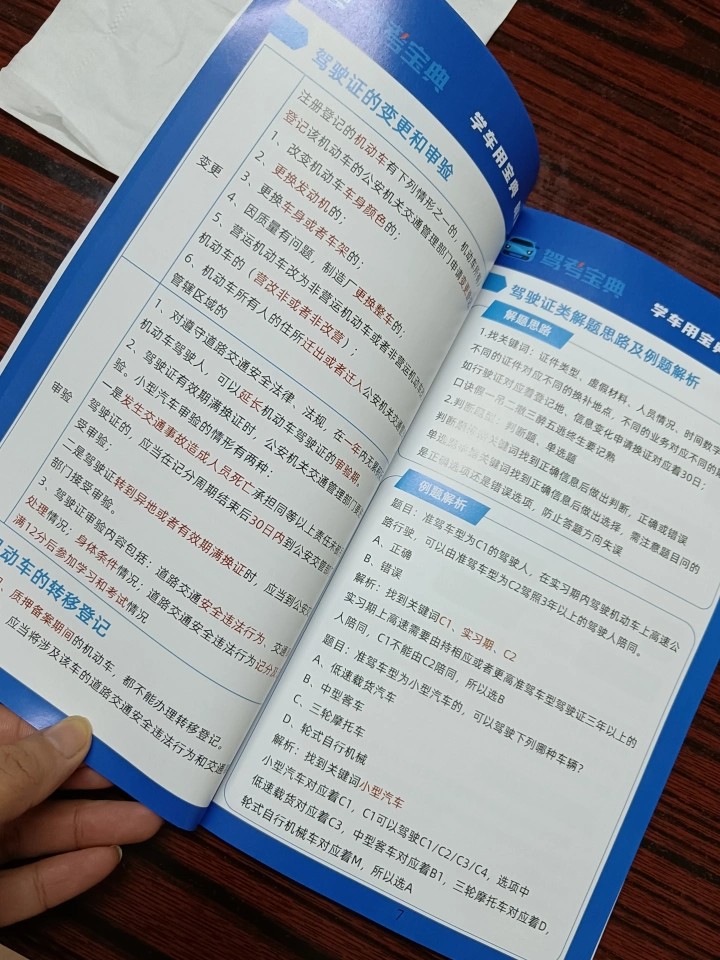 考宝典
学车用宝典
驾驶证的变更和审验
变更
注册登记的机动车有下列情形之一的，机动车所
登记该机动车的公安机关交通管理部门申请变更
1、改变机动车车身颜色的；
2、更换发动机的；
3、更换车身或者车架的；
4、因质量有问题，制造厂更换整车的；
5、营运机动车改为非营运机动车或者非营运机动车
机动车的（营改非或者非改营）；
6、机动车所有人的住所迁出或者迁入公安机关交通
管辖区域的
审验
1、对遵守道路交通安全法律、法规，在一年内无累积
机动车驾驶人，可以延长机动车驾驶证的审验期。
2、驾驶证有效期满换证时，公安机关交通管理部门
验。小型汽车审验的情形有两种：
一是发生交通事故造成人员死亡承担同等以上责任未被
驾驶证的，应当在记分周期结束后30日内到公安交管部
受审验；
二是驾驶证转到异地或者有效期满换证时，应当到公安
部门接受审验。
3、驾驶证审验内容包括：道路交通安全违法行为、交通
处理情况；身体条件情况；道路交通安全违法行为记分及
满12分后参加学习和考试情况
动车的转移登记
、质押备案期间的机动车，都不能办理转移登记。
应当将涉及该车的道路交通安全违法行为和交通
驾考宝典
学车用宝典
驾驶证类解题思路及例题解析
解题思路
1.找关键词：证件类型、虚假材料、人员情况、时间数字
不同的证件对应不同的换补地点，不同的业务对应不同的
如行驶证对应着登记地，信息变化申请换证对应着30日；
口诀假一吊二撤三醉五逃终生要记熟
2.判断题型：判断题，单选题
判断题根据关键词找到正确信息后做出判断，正确或错误
单选题根据关键词找到正确信息后做出选择，需注意题目问的
是正确选项还是错误选项，防止答题方向失误
例题解析
题目：准驾车型为C1的驾驶人，在实习期内驾驶机动车上高速公
路行驶，可以由准驾车型为C2驾照3年以上的驾驶人陪同。
A、正确
B、错误
解析：找到关键词C1、实习期、C2
实习期上高速需要由持相应或者更高准驾车型驾驶证三年以上的
人陪同，C1不能由C2陪同，所以选B
题目：准驾车型为小型汽车的，可以驾驶下列哪种车辆？
A、低速载货汽车
B、中型客车
C、三轮摩托车
D、轮式自行机械
解析：找到关键词小型汽车
小型汽车对应着C1，C1可以驾驶C1/C2/C3/C4，选项中
低速载货对应着C3，中型客车对应着B1，三轮摩托车对应着D，
轮式自行机械车对应着M，所以选A
7